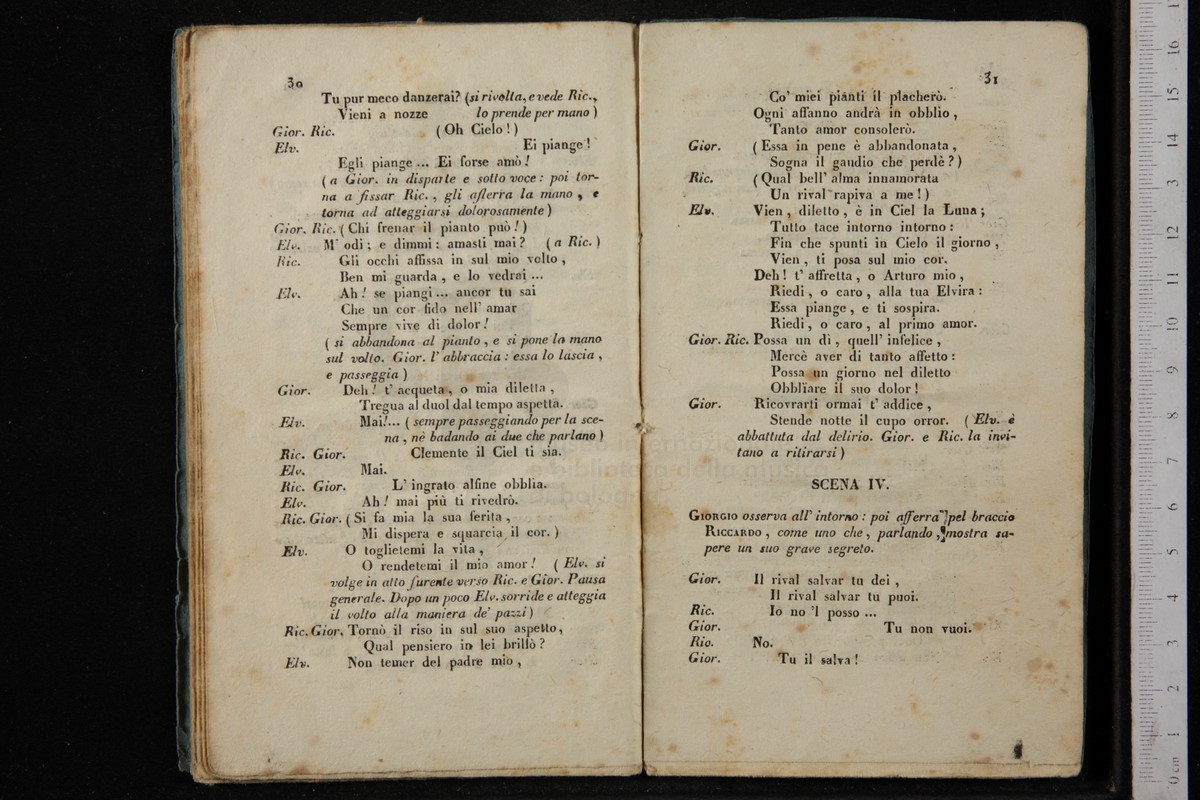 30
Tu pur meco danzerai? (si rivolta, e vede Ric.,
Vieni a nozze lo prende per mano)
Gior. Ric. (Oh Cielo!)
Elv. Ei piange!
Egli piange ... Ei forse amò!
(a Gior. in disparte e sotto voce: poi tor-
na a fissar Ric., gli afferra la mano, e
torna ad atteggiarsi dolorosamente)
Gior. Ric. (Chi frenar il pianto può!)
Elv. M' odi; e dimmi: amasti mai? (a Ric.)
Ric. Gli occhi affissa in sul mio volto,
Ben mi guarda, e lo vedrai ...
Elv. Ah! se piangi ... ancor tu sai
Che un cor fido nell' amar
Sempre vive di dolor!
(si abbandona al pianto, e si pone la mano
sul volto. Gior. l' abbraccia: essa lo lascia,
e passeggia)
Gior. Deh! t' acqueta, o mia diletta,
Tregua al duol dal tempo aspetta.
Elv. Mai!... (sempre passeggiando per la sce-
na, nè badando ai due che parlano)
Ric. Gior. Clemente il Ciel ti sia.
Elv. Mai.
Ric. Gior. L' ingrato alfine obblia.
Elv. Ah! mai più ti rivedrò.
Ric. Gior. (Si fa mia la sua ferita,
Mi dispera e squarcia il cor.)
Elv. O toglietemi la vita,
O rendetemi il mio amor! (Elv. si
volge in atto furente verso Ric. e Gior. Pausa
generale. Dopo un poco Elv. sorride e atteggia
il volto alla maniera de' pazzi)
Ric. Gior. Tornò il riso in sul suo aspetto,
Qual pensiero in lei brillò?
Elv. Non temer del padre mio,
31
Co' miei pianti il placherò.
Ogni affanno andrà in obblio,
Tanto amor consolerò.
Gior. (Essa in pene è abbandonata,
Sogna il gaudio che perdè?)
Ric. (Qual bell' alma innamorata
Un rival rapiva a me!)
Elv. Vien, diletto, è in Ciel la Luna;
Tutto tace intorno intorno:
Fin che spunti in Cielo il giorno,
Vien, ti posa sul mio cor.
Deh! t' affretta, o Arturo mio,
Riedi, o caro, alla tua Elvira:
Essa piange, e ti sospira.
Riedi, o caro, al primo amor.
Gior. Ric. Possa un dì, quell' infelice,
Mercè aver di tanto affetto:
Possa un giorno nel diletto
Obblïare il suo dolor!
Gior. Ricovrarti ormai t' addice,
Stende notte il cupo orror. (Elv. è
abbattuta dal delirio. Gior. e Ric. la invi-
tano a ritirarsi)
SCENA IV.
GIORGIO osserva all' intorno: poi afferra pel braccio
RICCARDO, come uno che, parlando, mostra sa-
pere un suo grave segreto.
Gior. Il rival salvar tu dei,
Il rival salvar tu puoi.
Ric. Io no 'l posso ...
Gior. Tu non vuoi.
Ric. No.
Gior. Tu il salva!